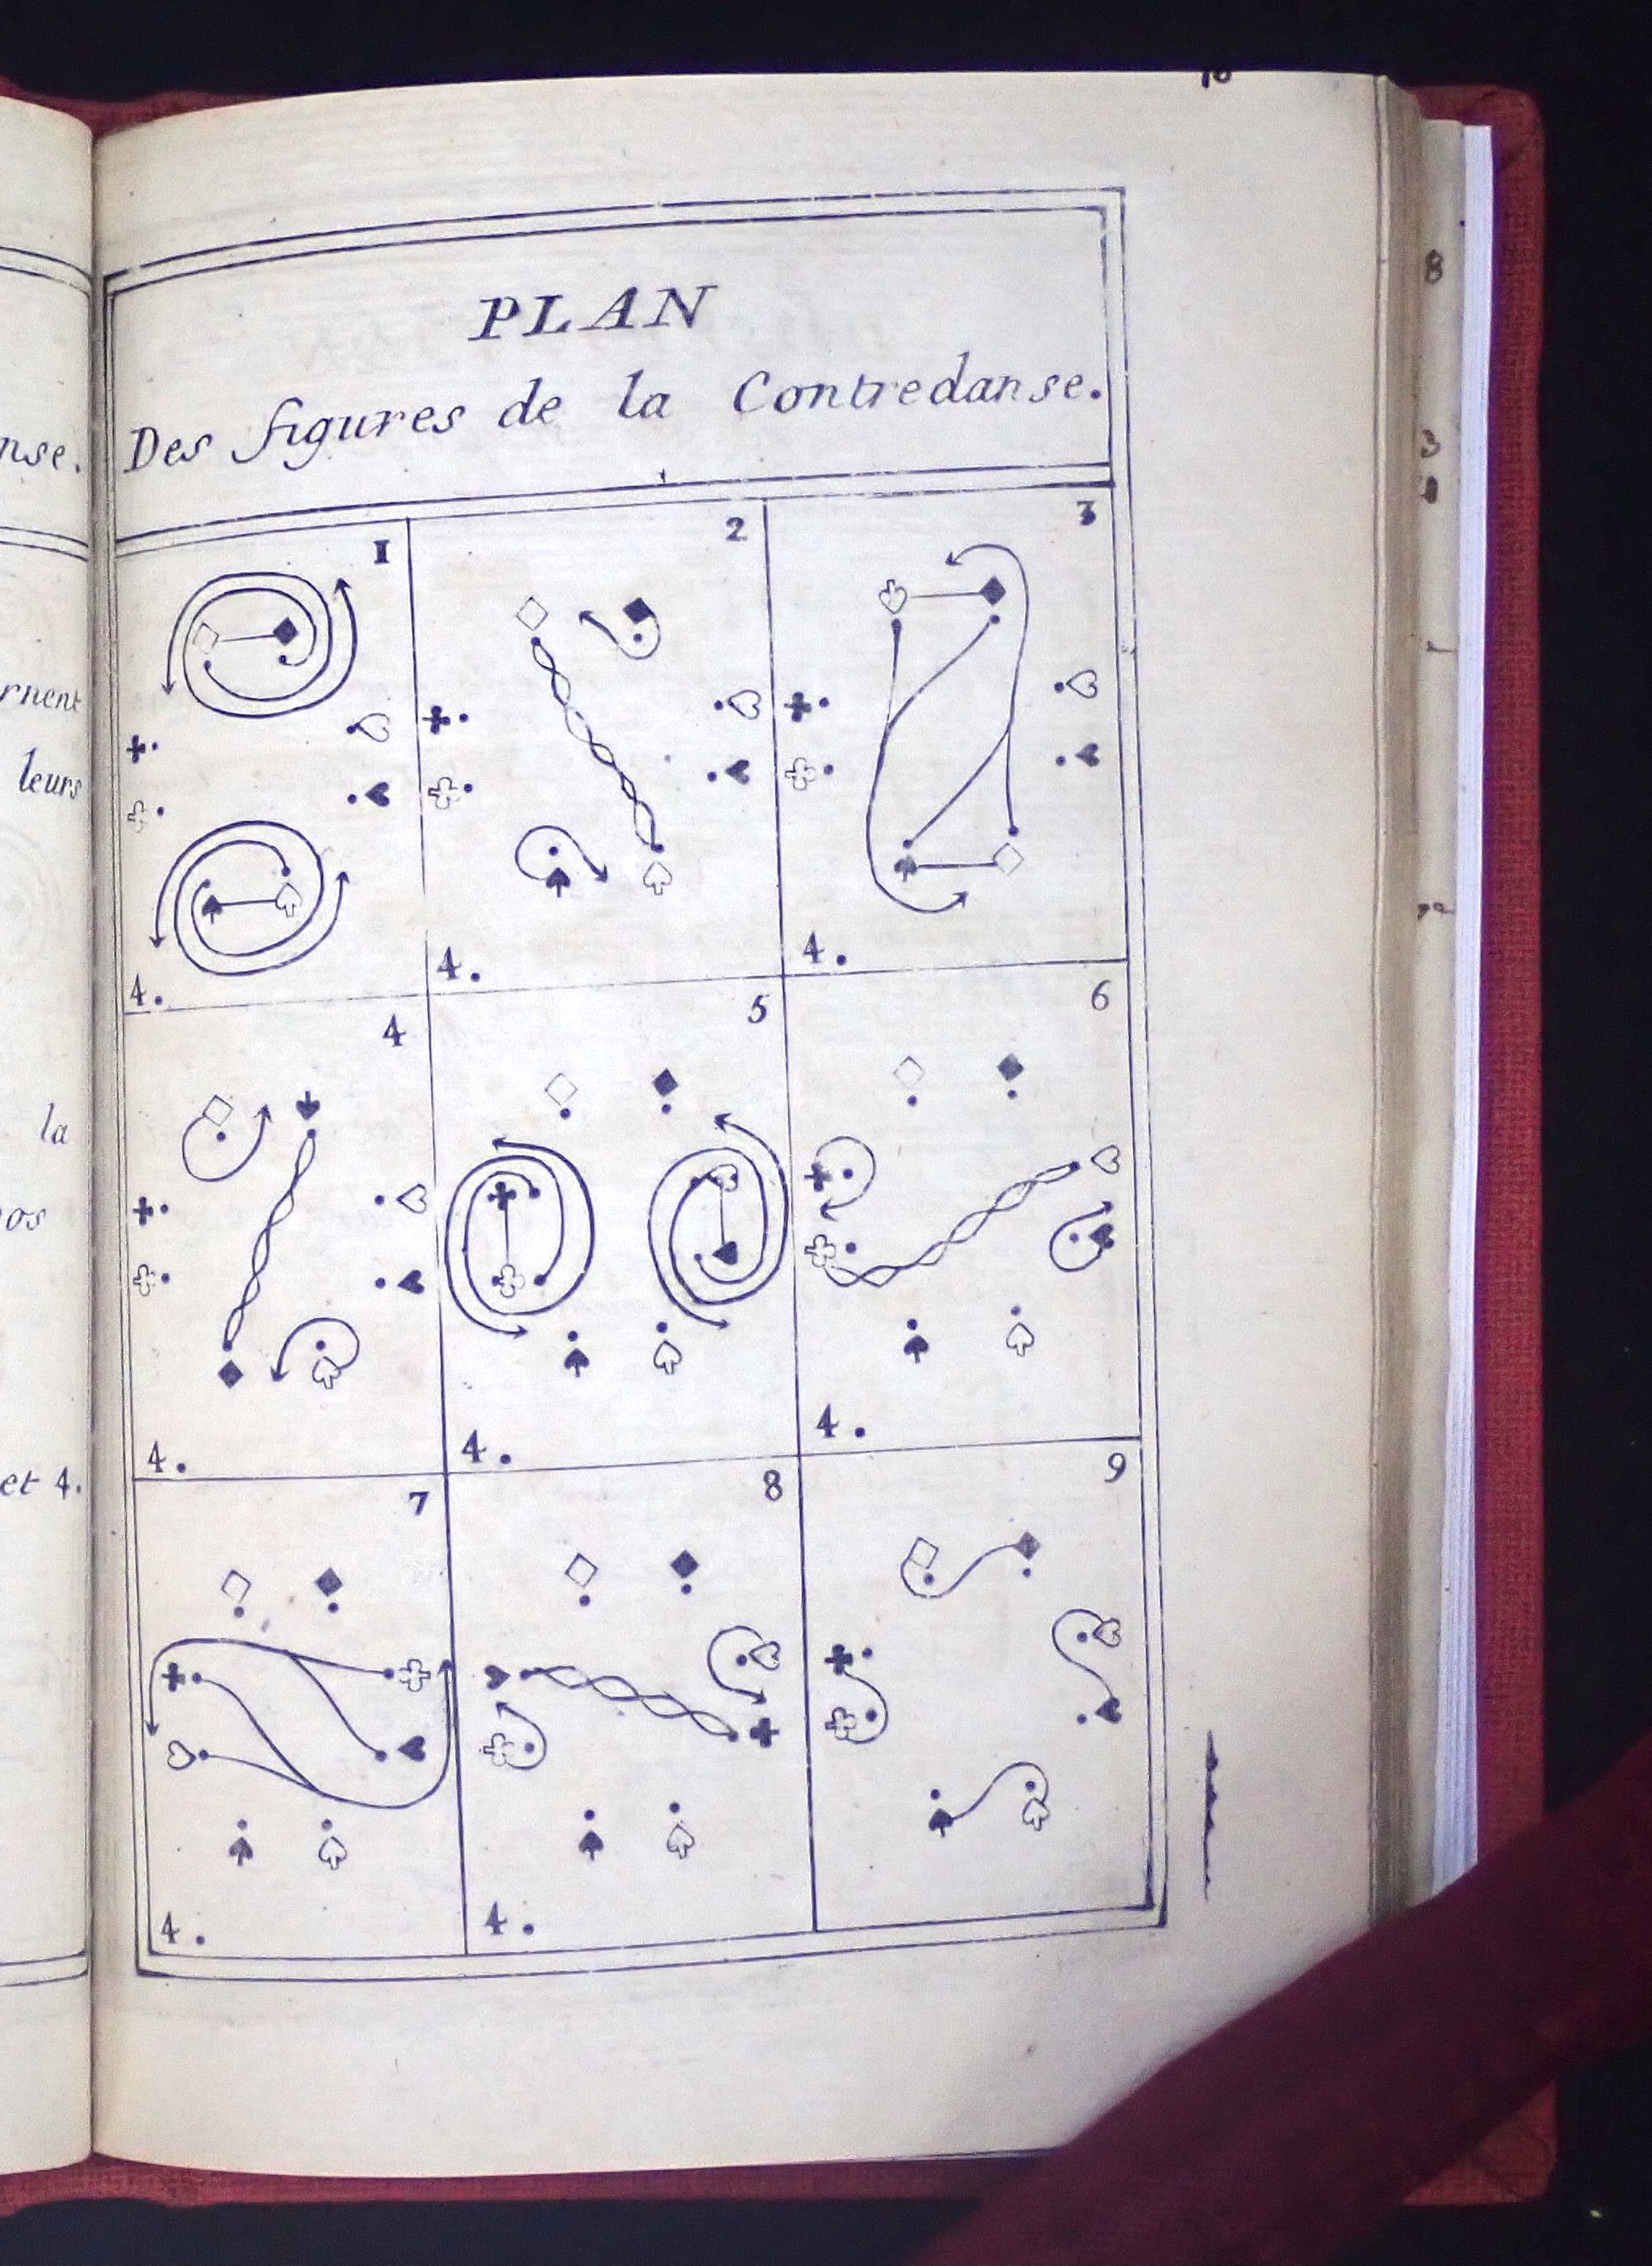 10
PLAN
Des figures de la Contredanse.
nse.
rnent
leurs
la
os
et 4.
1
2
3
4.
4.
4.
4
5
6
4.
4.
4.
7
8
9
4.
4.
8
3